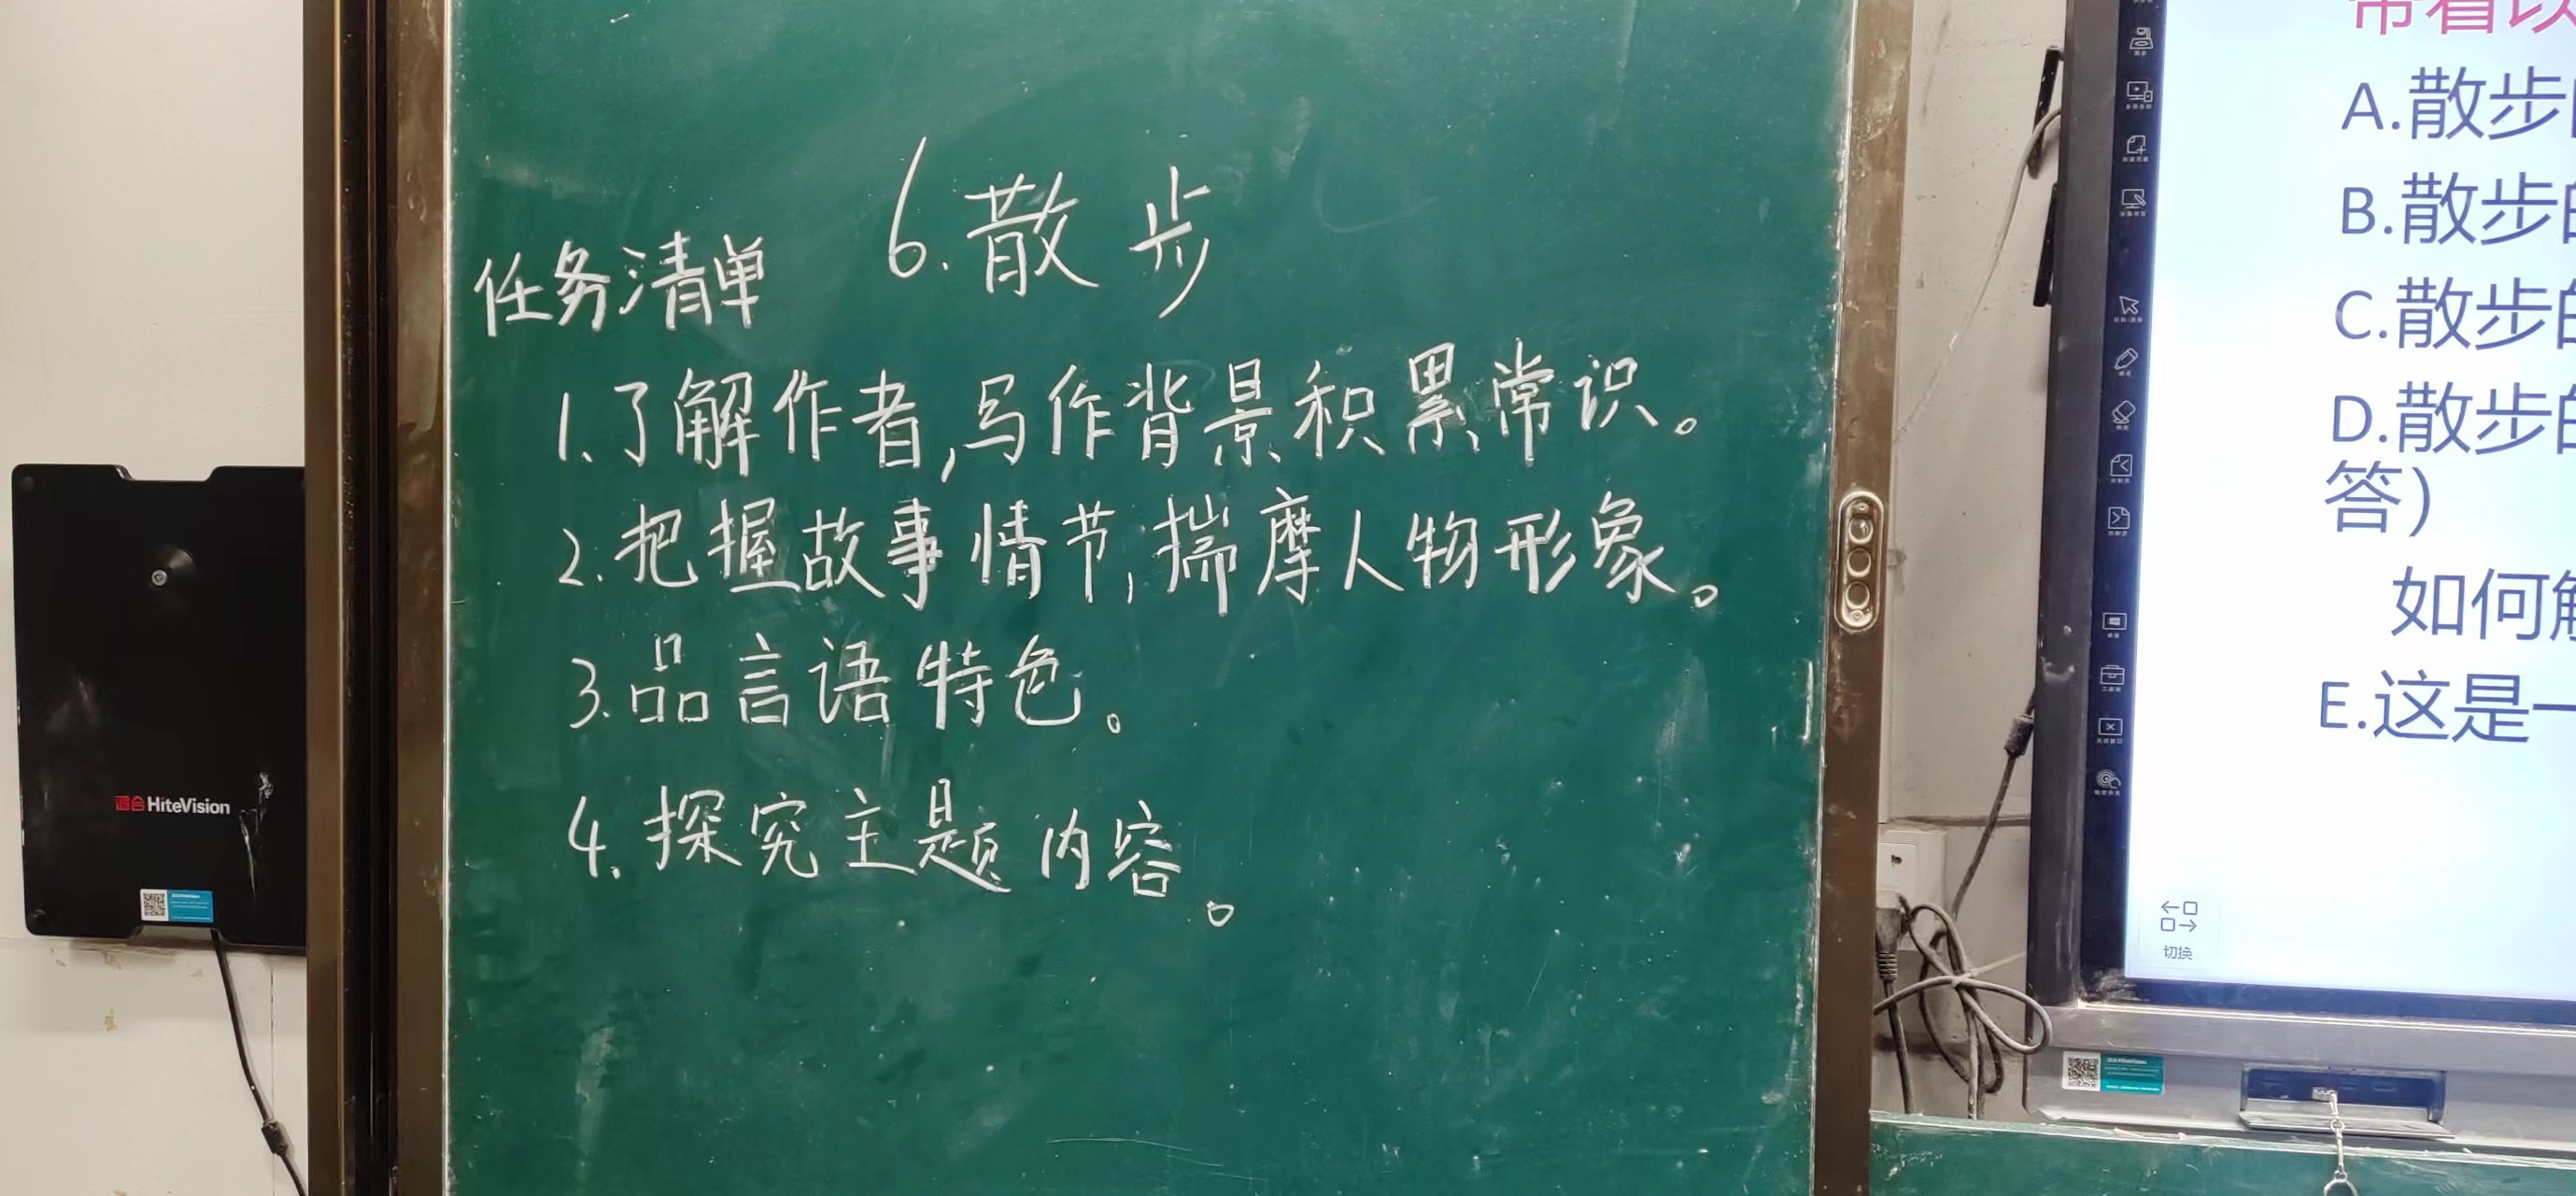 6.散步
任务清单
1.了解作者,写作背景积累常识。
2.把握故事情节,揣摩人物形象。
3.品言语特色。
4.探究主题内容。
HiteVision
带着以
A.散步
B.散步的
C.散步的
D.散步的
答）
如何解
E.这是一
切换